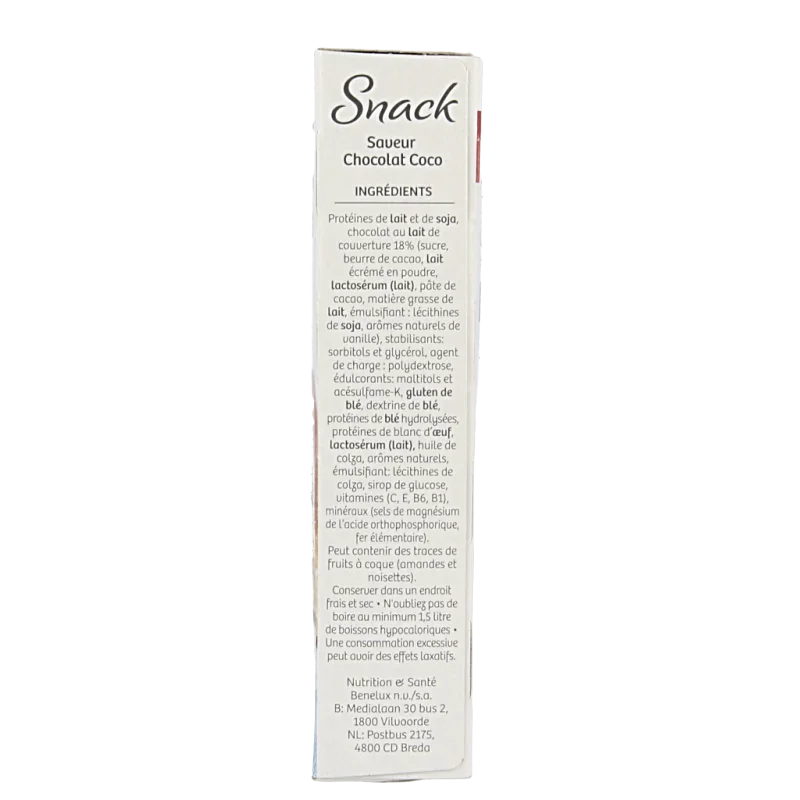 Snack
Saveur
Chocolat Coco
INGRÉDIENTS
Protéines de lait et de soja,
chocolat au lait de
couverture 18% (sucre,
beurre de cacao, lait
écrémé en poudre,
lactosérum (lait), pâte de
cacao, matière grasse de
lait, émulsifiant : lécithines
de soja, arômes naturels de
vanille), stabilisants:
sorbitols et glycérol, agent
de charge : polydextrose,
édulcorants: maltitols et
acésulfame-K, gluten de
blé, dextrine de blé,
protéines de blé hydrolysées,
protéines de blanc d'œuf,
lactosérum (lait), huile de
colza, arômes naturels,
émulsifiant: lécithines de
colza, sirop de glucose,
vitamines (C, E, B6, B1),
minéraux (sels de magnésium
de l'acide orthophosphorique,
fer élémentaire).
Peut contenir des traces de
fruits à coque (amandes et
noisettes).
Conserver dans un endroit
frais et sec • N'oubliez pas de
boire au minimum 1,5 litre
de boissons hypocaloriques •
Une consommation excessive
peut avoir des effets laxatifs.
Nutrition & Santé
Benelux n.v./s.a.
B: Medialaan 30 bus 2,
1800 Vilvoorde
NL: Postbus 2175,
4800 CD Breda